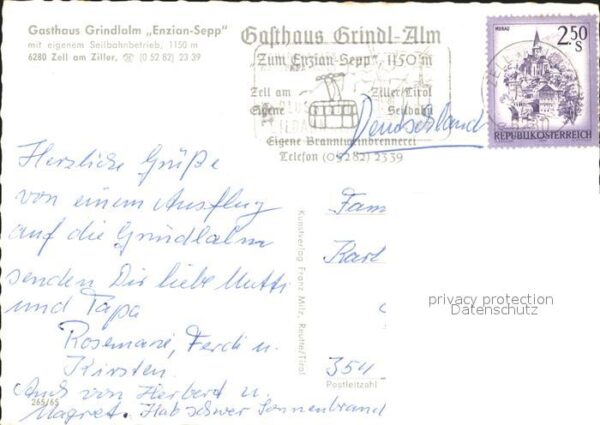 Gasthaus Grindlalm „Enzian-Sepp"
mit eigenem Seilbahnbetrieb, 1150 m
6280 Zell am Ziller, ☏ (0 52 82) 23 39
Gasthaus Grindl-Alm
"Zum Enzian-Sepp", 1150 m
Zell am Ziller/Tirol
Eigene Seilbahn
Eigene Branntweinbrennerei
Telefon (05282) 2339
MURAU
2.50
S
REPUBLIK ÖSTERREICH
Deutschland
Herzliche Grüße
von einem Ausflug
auf die Grindlalm
senden Dir liebe Mutti
und Papa
Rosemarie, Ferdi u.
Kirsten.
Auch von Herbert u.
Magret. Hab schwer Sonnenbrand
265/65
Kunstverlag Franz Milz, Reutte/Tirol
Fam
Karl
354
Postleitzahl
privacy protection
Datenschutz